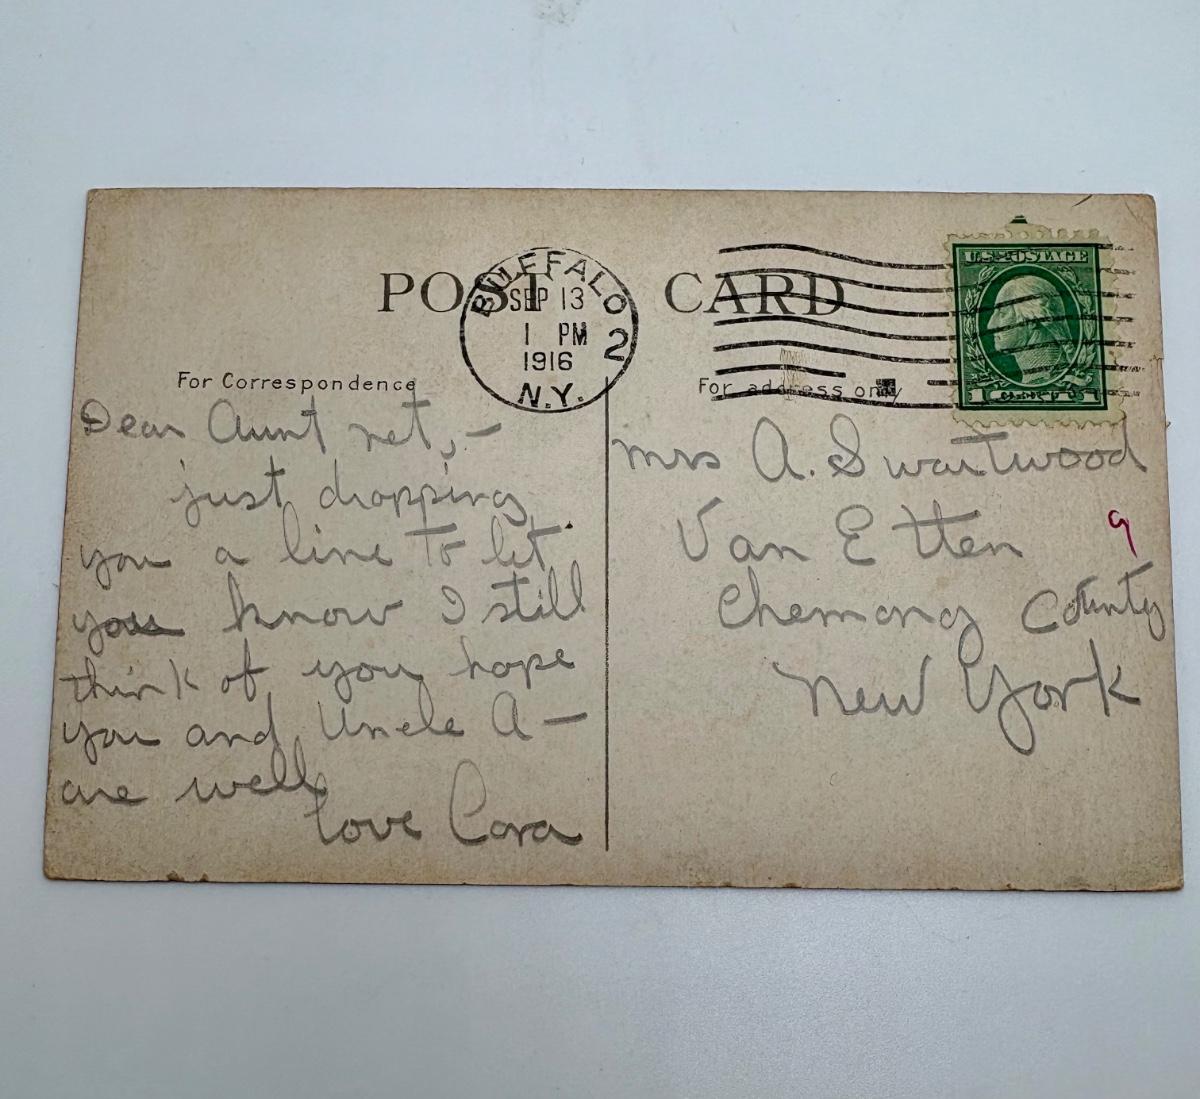 POST CARD
BUFFALO
SEP 13
1 PM
1916
2
N.Y.
U.S. POSTAGE
For Correspondence
For address only
Dear Aunt net,—
just dropping
you a line to let
you know I still
think of you hope
you and Uncle A—
are well
love Cora
Mrs A. Swartwood
Van Etten
9
Chemong County
New York